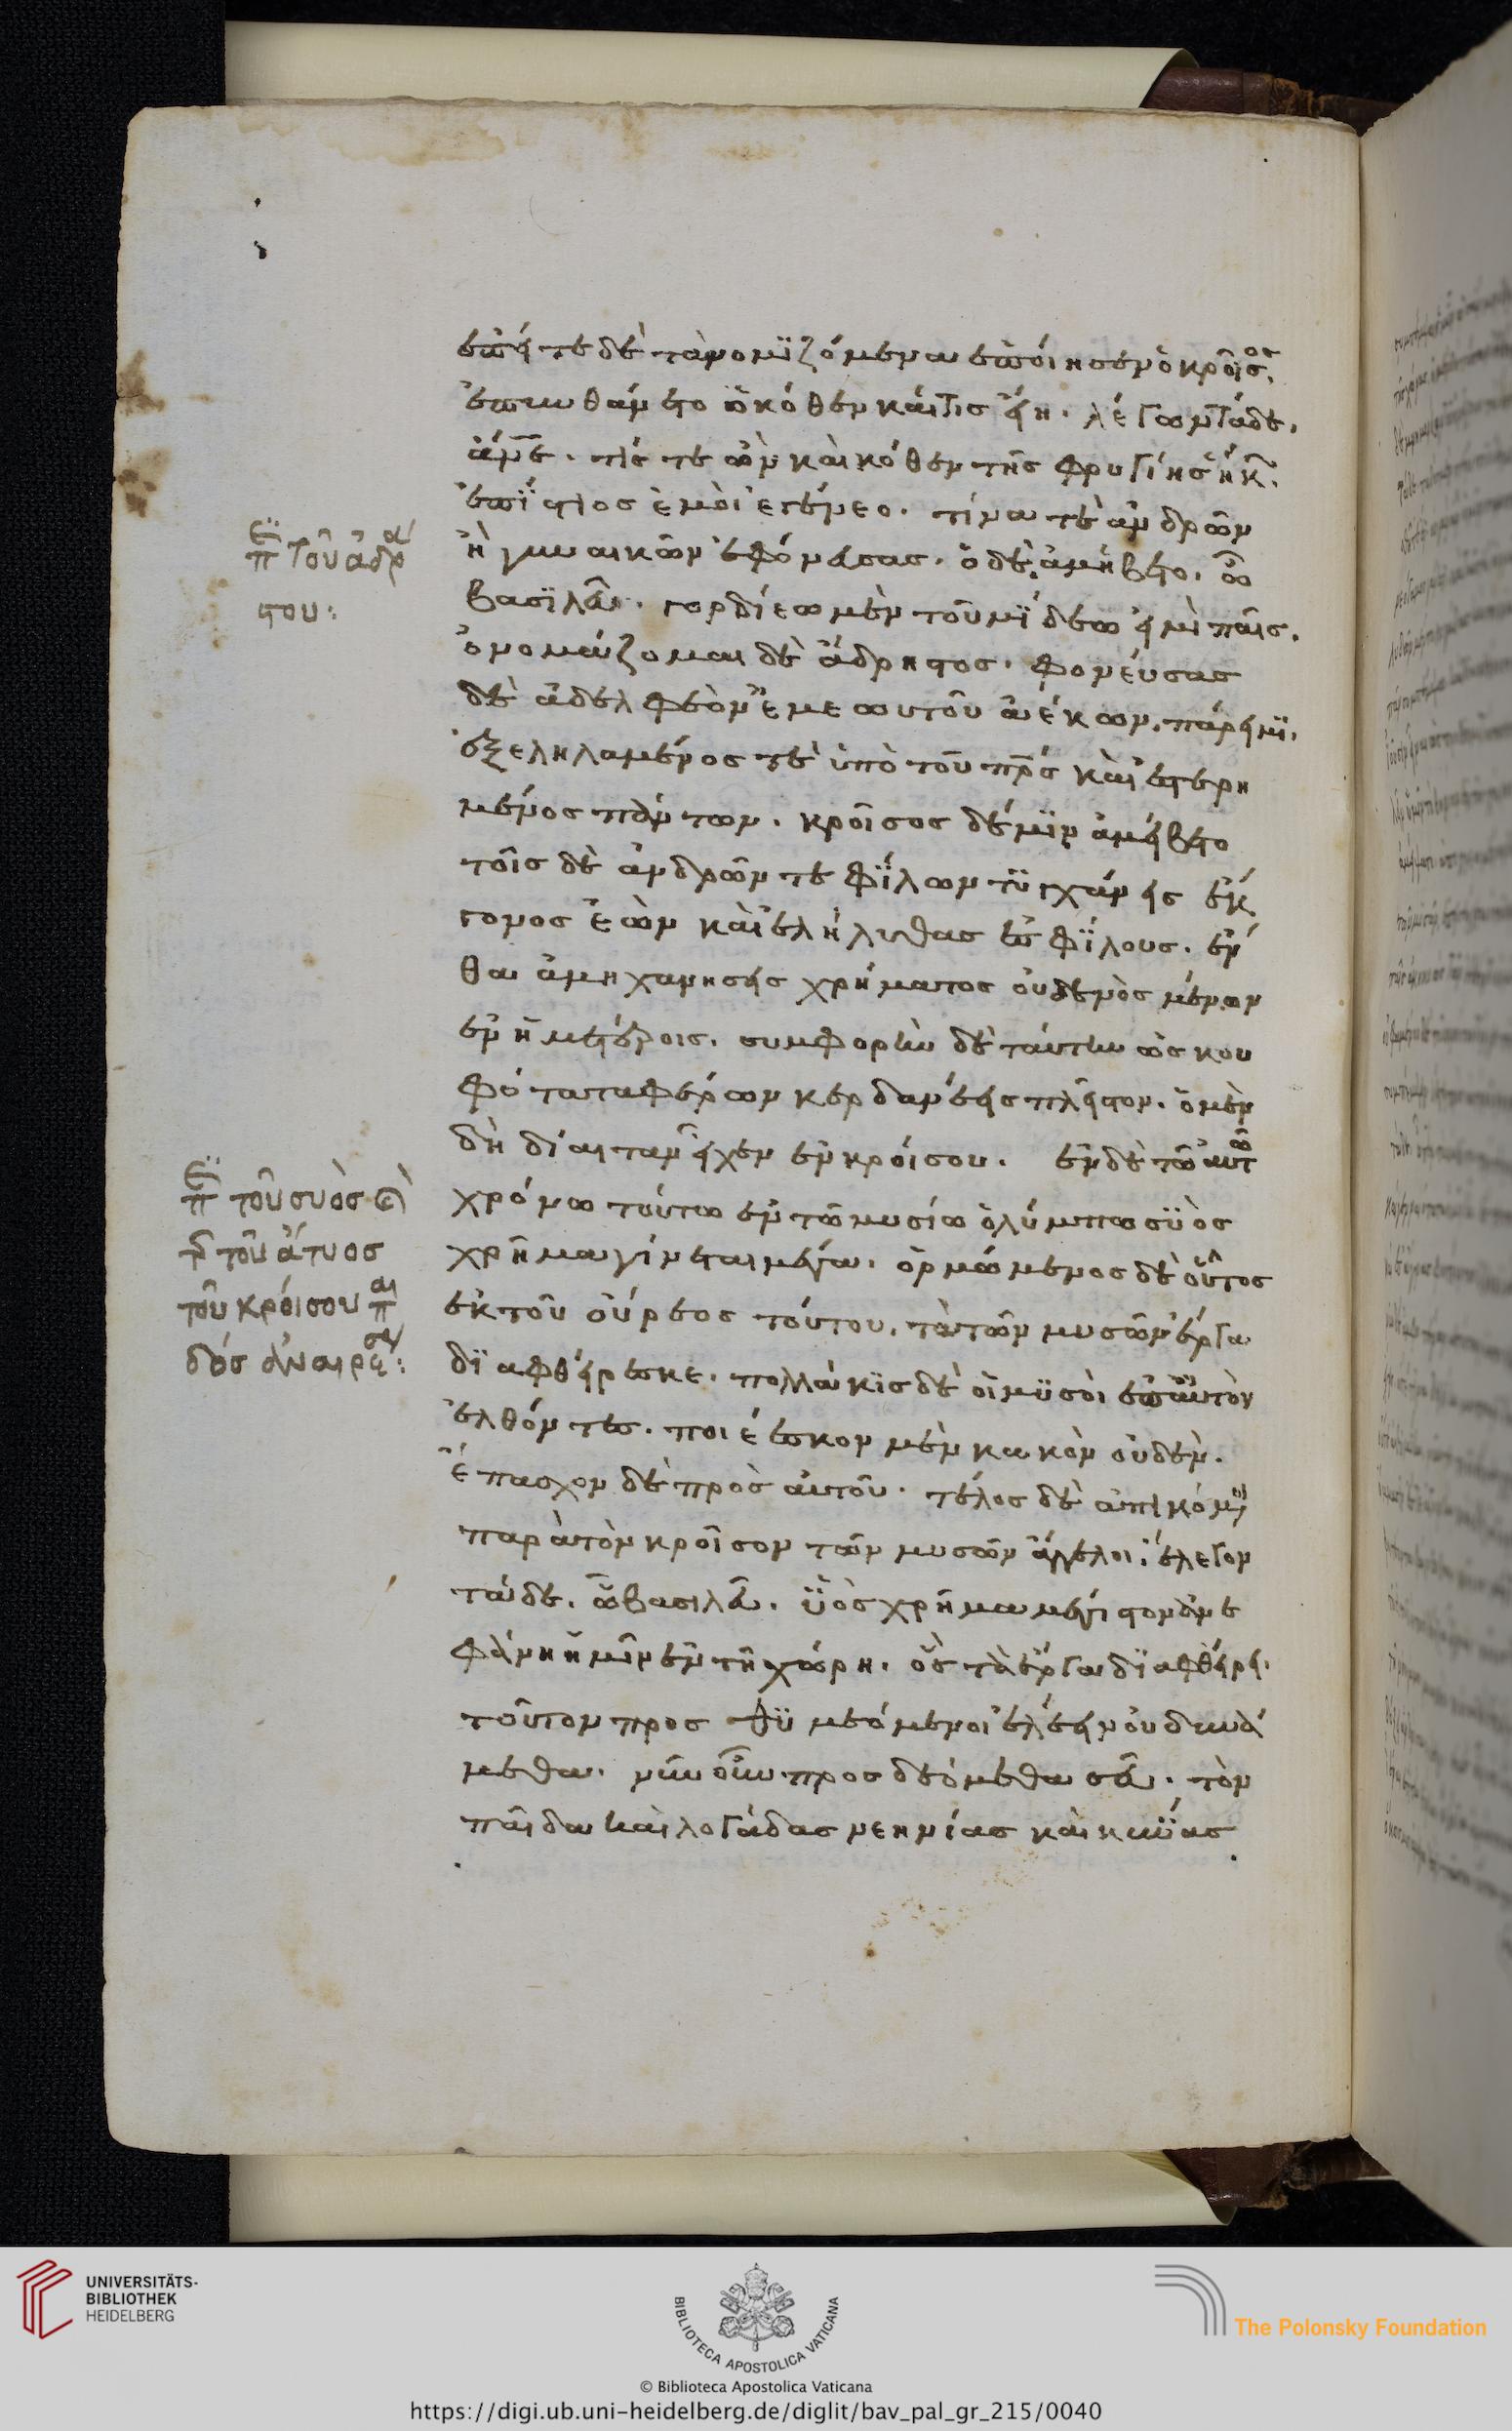 ἐπείτε δὲ τὰ νομιζόμενα ἐποίησεν ὁ κροῖσος,
ἐπυνθάνετο ὁκόθεν καὶ τίς εἴη. λέγων τάδε,
ἄνθρωπε. τίς τε ὢν καὶ κόθεν τῆς φρυγίης ἥκων
ἐπίστιος ἐμοὶ ἐγένεο. τίνα τὲ ἀνδρῶν
ἢ γυναικῶν ἐφόνευσας. ὁ δὲ ἀμείβετο. ὦ
βασιλεῦ. γορδίεω μὲν τοῦ μίδεω εἰμὶ παῖς.
ὀνομάζομαι δὲ ἄδρηστος. φονεύσας
δὲ ἀδελφεὸν ἐμεωυτοῦ ἀέκων. πάρειμι.
ἐξεληλαμένος τὲ ὑπὸ τοῦ πρς καὶ ἐστερη
μένος πάντων. κροῖσος δέ μιν ἀμείβετο
τοῖς δὲ ἀνδρῶν τε φίλων τυγχάνεις ἔκ
γονος ἐὼν καὶ ἐλήλυθας ἐς φίλους. ἔν
θα ἀμηχανήσεις χρήματος οὐδενὸς μένων
ἐν ἡμετέροις. συμφορὴν δὲ ταύτην ὡς κου
φότατα φέρων κερδανέεις πλεῖστον. ὁ μὲν
δὴ δίαιταν εἶχεν ἐν κροίσου. ἐν δὲ τῶ αὐτῶ
χρόνω τούτω ἐν τῶ μυσίω ὀλύμπω συὸς
χρῆμα γίνεται μέγα. ὁρμώμενος δὲ οὗτος
ἐκ τοῦ οὔρεος τούτου. τὰ τῶν μυσῶν ἔργα
διαφθείρεσκε. πολλάκις δὲ οἱ μυσοὶ ἐπ' αὐτὸν
ἐλθόντες. ποιέεσκον μὲν κακὸν οὐδὲν.
ἔπασχον δὲ πρὸς αὐτοῦ. τέλος δὲ ἀπικόμενοι
παρὰ τὸν κροῖσον τῶν μυσῶν ἄγγελοι, ἔλεγον
τάδε. ὦ βασιλεῦ. ὑὸς χρῆμα μέγιστον ἀνε
φάνη ἡμῖν ἐν τῆ χώρη. ὃς τὰ ἔργα διαφθείρει.
τοῦτον προθυμεόμενοι ἑλέειν οὐ δυνά
μεθα. νῦν ὦν προσδεόμεθα σεῦ. τὸν
παῖδα καὶ λογάδας νεηνίας καὶ κύνας
περὶ τοῦ ἀδρά
στου:
περὶ τοῦ συὸς καὶ
περὶ τοῦ ἄτυος
τοῦ κροίσου παι
δὸς ἀναιρέσεως:
UNIVERSITÄTS-
BIBLIOTHEK
HEIDELBERG
BIBLIOTECA APOSTOLICA VATICANA
The Polonsky Foundation
© Biblioteca Apostolica Vaticana
https://digi.ub.uni-heidelberg.de/diglit/bav_pal_gr_215/0040